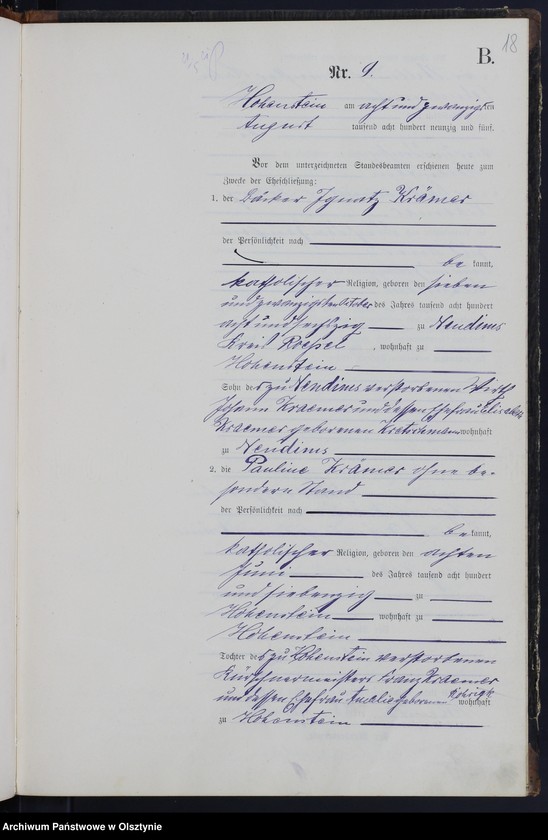 18
B.
Nr. 9.
Hohenstein am acht und zwanzigsten
August tausend acht hundert neunzig und fünf.
Vor dem unterzeichneten Standesbeamten erschienen heute zum
Zwecke der Eheschließung:
1. der Bäcker Ignatz Krämer
der Persönlichkeit nach
be kannt,
katholischer Religion, geboren den sieben
und zwanzigsten October des Jahres tausend acht hundert
acht und sechszig zu
Kreis Roessel, wohnhaft zu
Hohenstein
Sohn des zu verstorbenen Wirth
Johann Kraemer und dessen Ehefrau Elisabeth
Kraemer geborenen wohnhaft
zu
2. die Pauline Krämer ohne be-
sondern Stand
der Persönlichkeit nach
be kannt,
katholischer Religion, geboren den achten
Juni des Jahres tausend acht hundert
und siebenzig zu
Hohenstein wohnhaft zu
Hohenstein
Tochter des zu Hohenstein verstorbenen
Kürschnermeisters Franz Kraemer
und dessen Ehefrau geborenen wohnhaft
zu Hohenstein
Archiwum Państwowe w Olsztynie